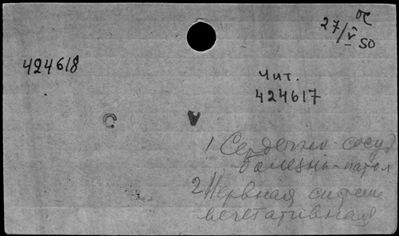 27/V 50
424618
Чит.
424617
С А
1 Сердечно-сосуд
болезни-патол
2 Нервная систем
вегетативная